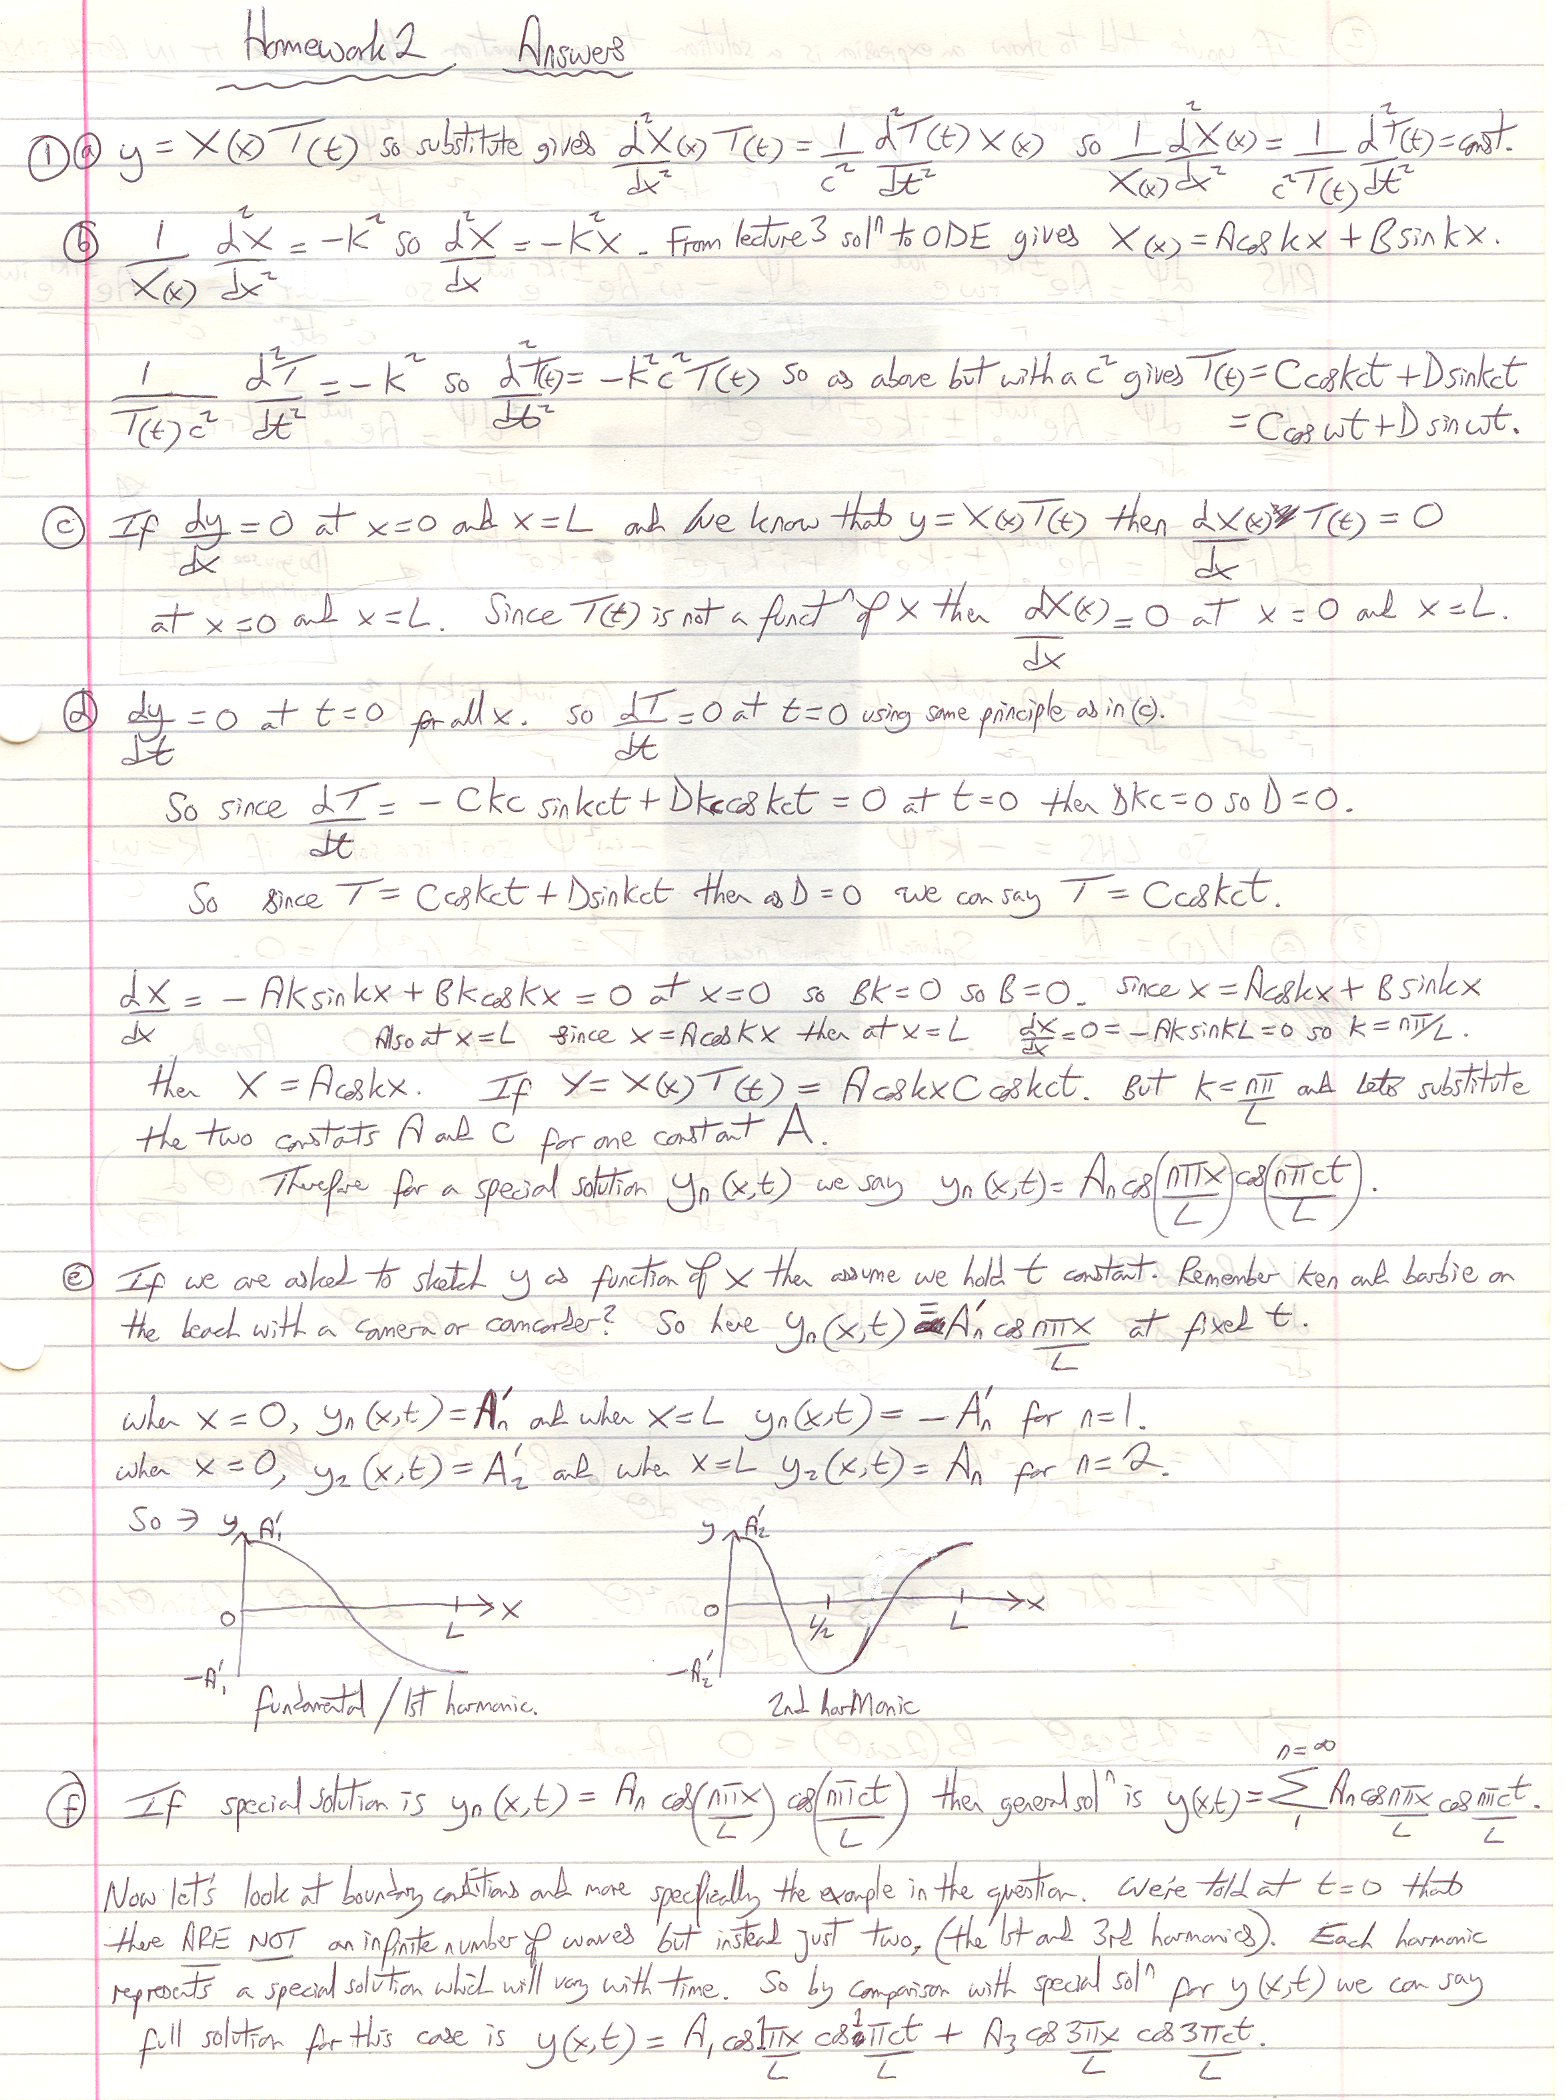 Homework 2 Answers
① ⓐ y = X(x) T(t) so substitute gives d²X(x)/dx² T(t) = 1/c² d²T(t)/dt² X(x) so 1/X(x) d²X(x)/dx² = 1/c²T(t) d²T(t)/dt² = const.
ⓑ 1/X(x) d²X/dx² = -k² so d²X/dx = -k²x. From lecture 3 solⁿ to ODE gives X(x) = Acos kx + Bsin kx.
1/T(t)c² d²T/dt² = -k² so d²T(t)/dt² = -k²c²T(t) so as above but with a c² gives T(t) = Ccoskct + Dsinkct
= Ccos ωt + D sin ωt.
ⓒ If dy/dx = 0 at x=0 and x=L and we know that y = X(x)T(t) then dX(x)/dx T(t) = 0
at x=0 and x=L. Since T(t) is not a functⁿ of x then dX(x)/dx = 0 at x=0 and x=L.
ⓓ dy/dt = 0 at t=0 for all x. so dT/dt = 0 at t=0 using same principle as in (c).
So since dT/dt = - Ckc sinkct + Dkc coskct = 0 at t=0 then Dkc=0 so D=0.
So since T = Ccoskct + Dsinkct then as D=0 we can say T = Ccoskct.
dX/dx = - Aksinkx + Bkcoskx = 0 at x=0 so Bk=0 so B=0. Since x = Acoskx + Bsinkx
Also at x=L since x=Acoskx then at x=L dx/dx=0=-AksinkL=0 so k=nπ/L.
then X = Acoskx. If Y = X(x)T(t) = AcoskxCcoskct. But k=nπ/L and lets substitute
the two constats A and C for one constant A.
Therefore for a special solution yₙ(x,t) we say yₙ(x,t) = Aₙcos(nπx/L)cos(nπct/L).
ⓔ If we are asked to sketch y as function of x then assume we hold t constant. Remember ken and barbie on
the beach with a camera or camcorder? So here yₙ(x,t) = A'ₙ cos nπx/L at fixed t.
when x=0, yₙ(x,t) = A'ₙ and when x=L yₙ(x,t) = -A'ₙ for n=1.
when x=0, y₂(x,t) = A'₂ and when x=L y₂(x,t) = Aₙ for n=2.
So → y A'₁ y A'₂
0 L x 0 L/2 L x
-A'₁ -A'₂
fundamental / 1st harmonic. 2nd harMonic
ⓕ If special solution is yₙ(x,t) = Aₙ cos(nπx/L) cos(nπct/L) then general solⁿ is y(x,t) = Σ₁ⁿ⁼∞ Aₙcosnπx/L cosnπct/L.
Now let's look at boundary conditions and more specifically the example in the question. We're told at t=0 that
there ARE NOT an infinite number of waves but instead just two, (the 1st and 3rd harmonics). Each harmonic
represents a special solution which will vary with time. So by comparison with special solⁿ for y(x,t) we can say
full solution for this case is y(x,t) = A₁cos1πx/L cos1πct/L + A₃cos3πx/L cos3πct/L.